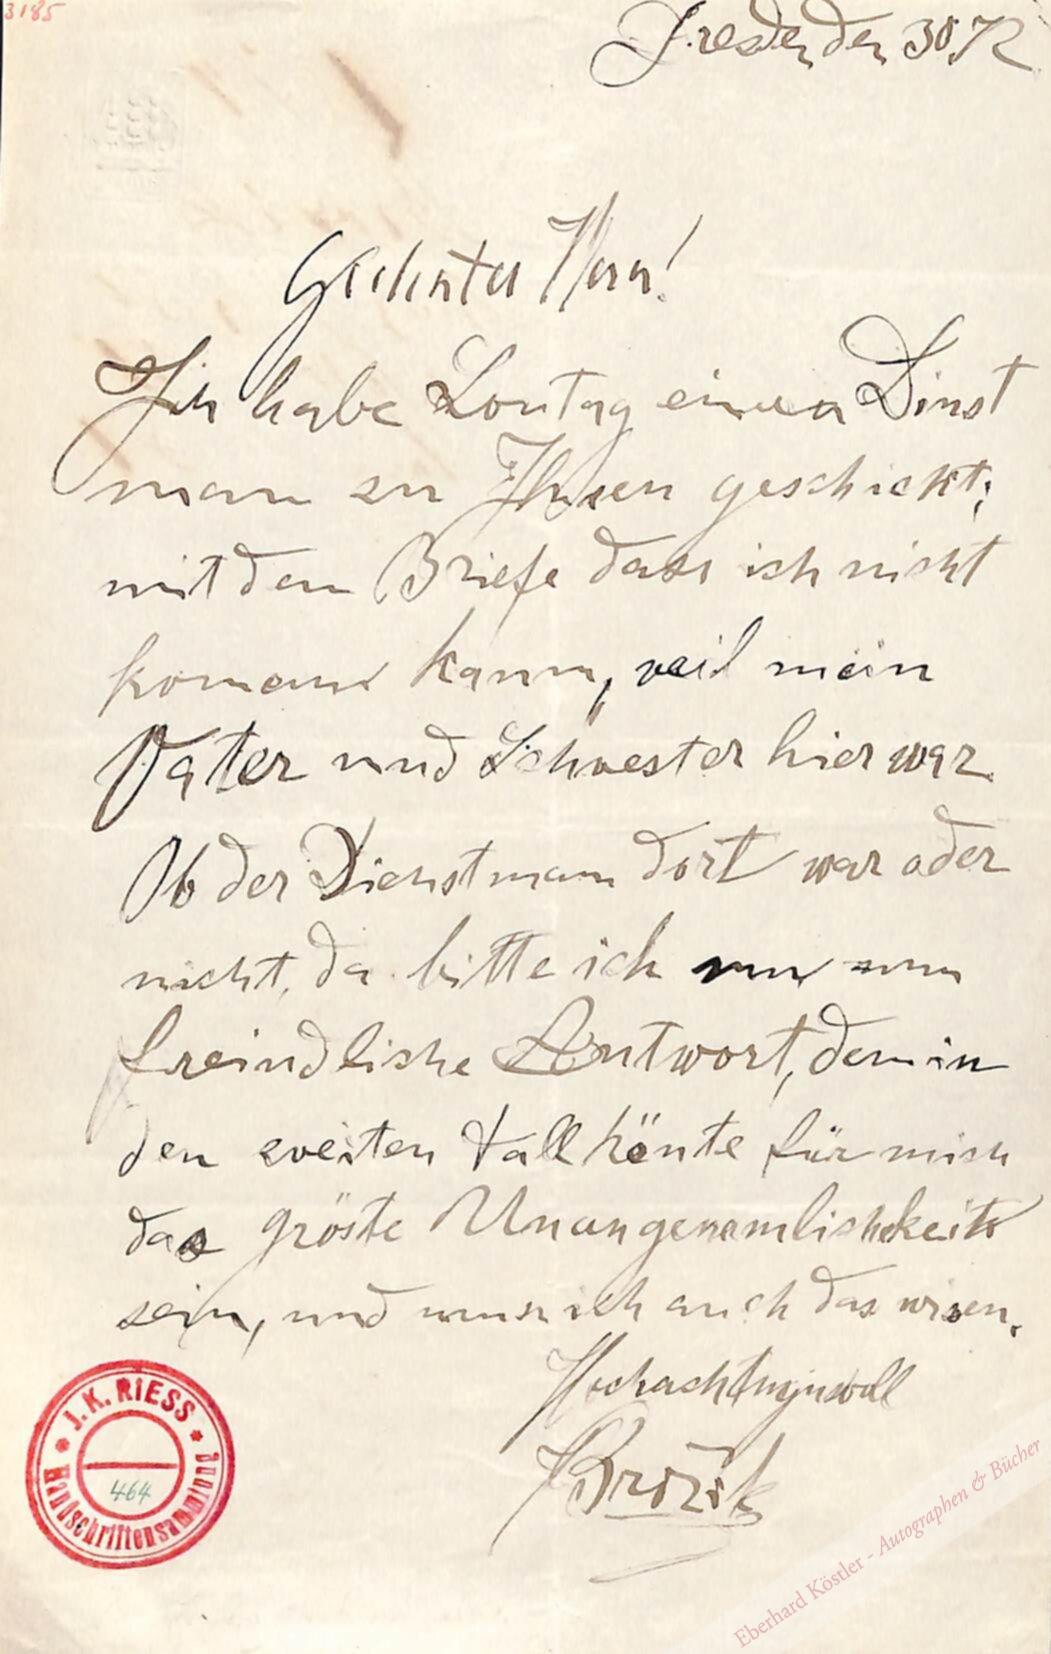 3185
Dresden den 30 72
Geehrter Herr!
Ich habe Sontag einen Dinst
man zu Ihnen geschickt,
mit dem Briefe dass ich nicht
komen kann, weil mein
Vater und Schwester hier war.
Ob der Dienstmann dort war oder
nicht, da bitte ich um
freindliche Antwort, denn in
den zweiten Fall könte für mich
das gröste Unangenemlichkeit
sein, und muss ich auch das wisen.
Hochachtungsvoll
Brožik
J. K. RIESS
464
Handschriftensammlung
Eberhard Köstler - Autographen & Bücher